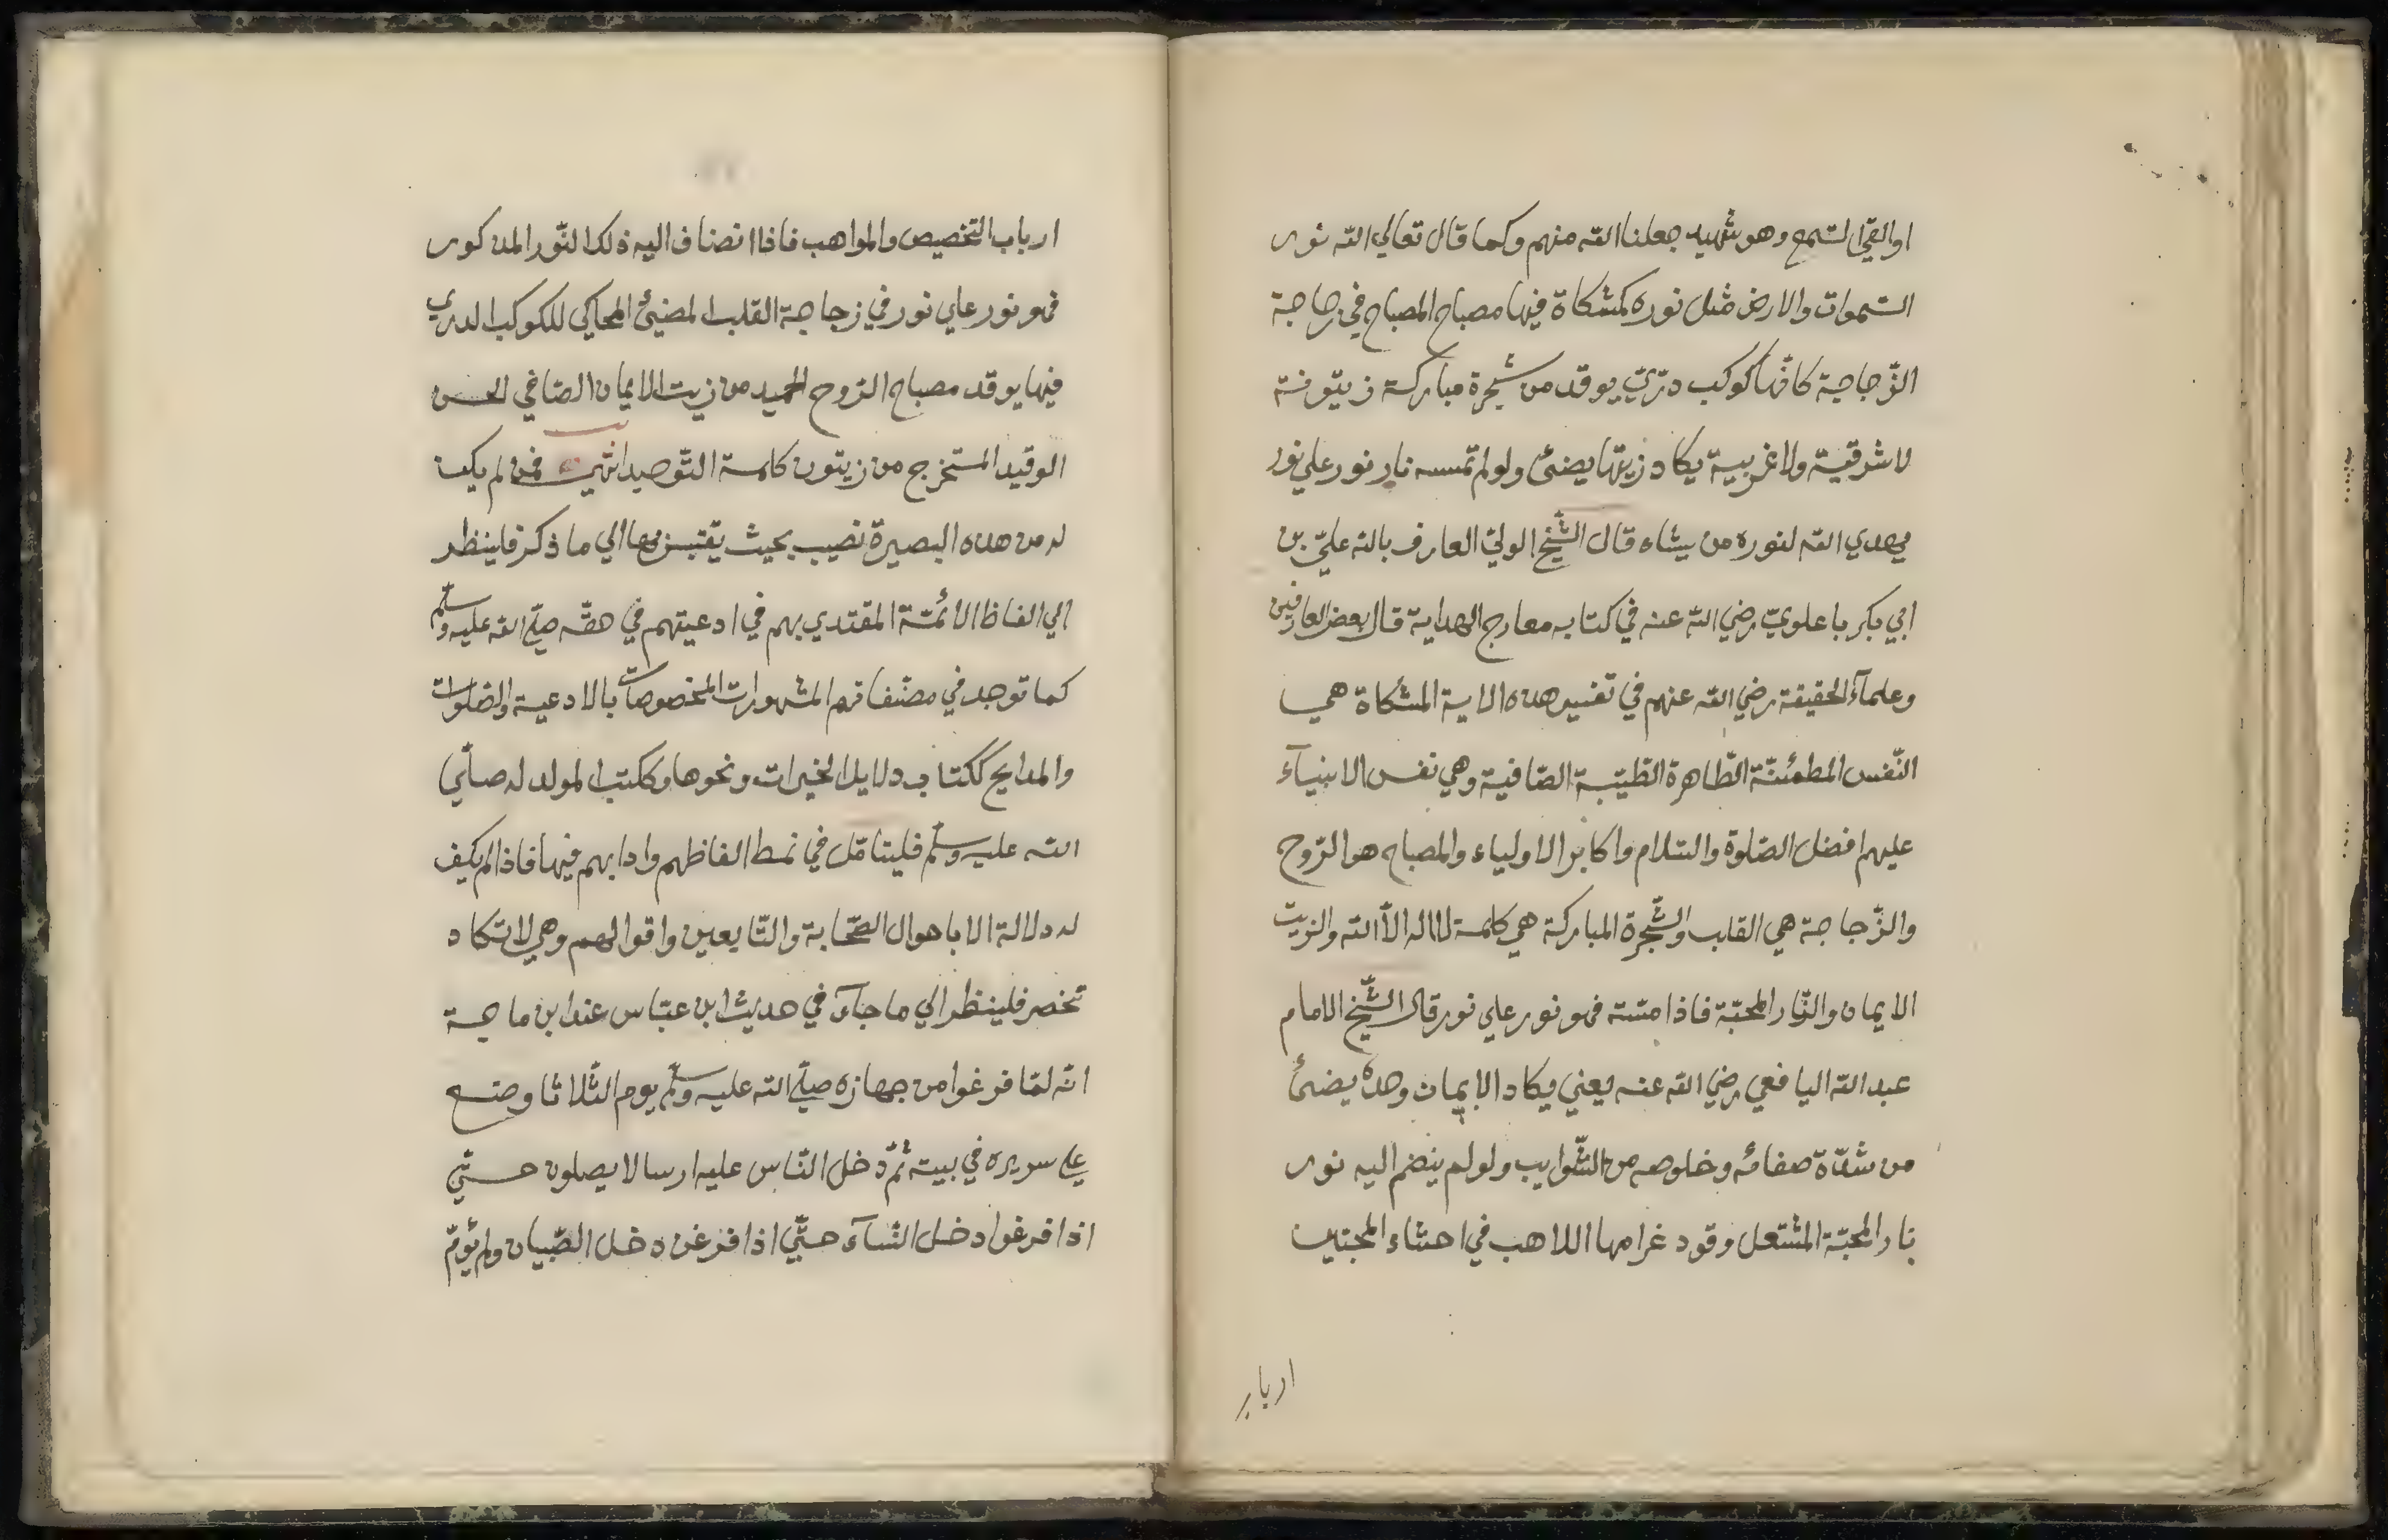 او القي السمع وهو شهيد جعلنا الله منهم وكما قال تعالي الله نور
السّموات والارض مثل نوره كمشكاة فيها مصباح المصباح في زجاجة
الزّجاجة كانّها كوكب درّيّ يوقد من شجرة مباركة زيتونة
لا شرقيّة ولا غربيّة يكاد زيتها يضئ ولو لم تمسسه نار نور علي نور
يهدي الله لنوره من يشاء قال الشّيخ الوليّ العارف بالله عليّ بن
ابي بكر باعلويّ رضي الله عنه في كتابه معارج الهداية قال بعض العارفين
وعلمآء الحقيقة رضي الله عنهم في تفسير هذه الاية المشكاة هي
النّفس المطمئنّة الطّاهرة الطّيّبة الصّافية وهي نفس الانبيآء
عليهم افضل الصّلوة والسّلام واكابر الاولياء والمصباح هو الرّوح
والزّجاجة هي القلب والشّجرة المباركة هي كلمة لا اله الاّ الله والزيت
الايمان والنّار المحبّة فاذا مسّته فهو نور علي نور قال الشّيخ الامام
عبد الله اليافعي رضي الله عنه يعني يكاد الايمان وحده يضئ
من شدّة صفائه وخلوصه من الشّوايب ولو لم ينضم اليه نور
نار المحبّة المشتعل وقود غرامها اللاهب في احشاء المحبّين
ارباب
ارباب التّخصيص والمواهب فاذا انضاف اليه ذلك النّور المذكور
فهو نور علي نور في زجاجة القلب المضيئ المحاكي للكوكب الدري
فيها يوقد مصباح الرّوح الحميد من زيت الايمان الصّافي الحسن
الوقيد المستخرج من زيتون كلمة التّوحيد انتهي فمن لم يكن
له من هذه البصيرة نصيب بحيث يقتبس بها الي ما ذكر فلينظر
الي الفاظ الائمّة المقتدي بهم في ادعيتهم في حقّه صلّي الله عليه وسلّم
كما توجد في مصنّفاتهم المشهورات المخصوصات بالادعية والصّلوات
والمدايح ككتاب دلايل الخيرات ونحوها وككتب المولد له صلّي
الله عليه وسلّم فليتامّل في نمط الفاظهم وادابهم فيها فاذا لم يكف
له دلالة الا باحوال الصّحابة والتّابعين واقوالهم وهي لا تكاد
تحصر فلينظر الي ما جآء في حديث ابن عبّاس عند ابن ماجة
انّه لمّا فرغوا من جهازه صلّي الله عليه وسلّم يوم الثّلاثا وضع
علي سريره في بيته ثمّ دخل النّاس عليه ارسالا يصلون حتّي
اذا فرغوا دخل النّسآء حتّي اذا فرغن دخل الصّبيان ولم يؤمّ